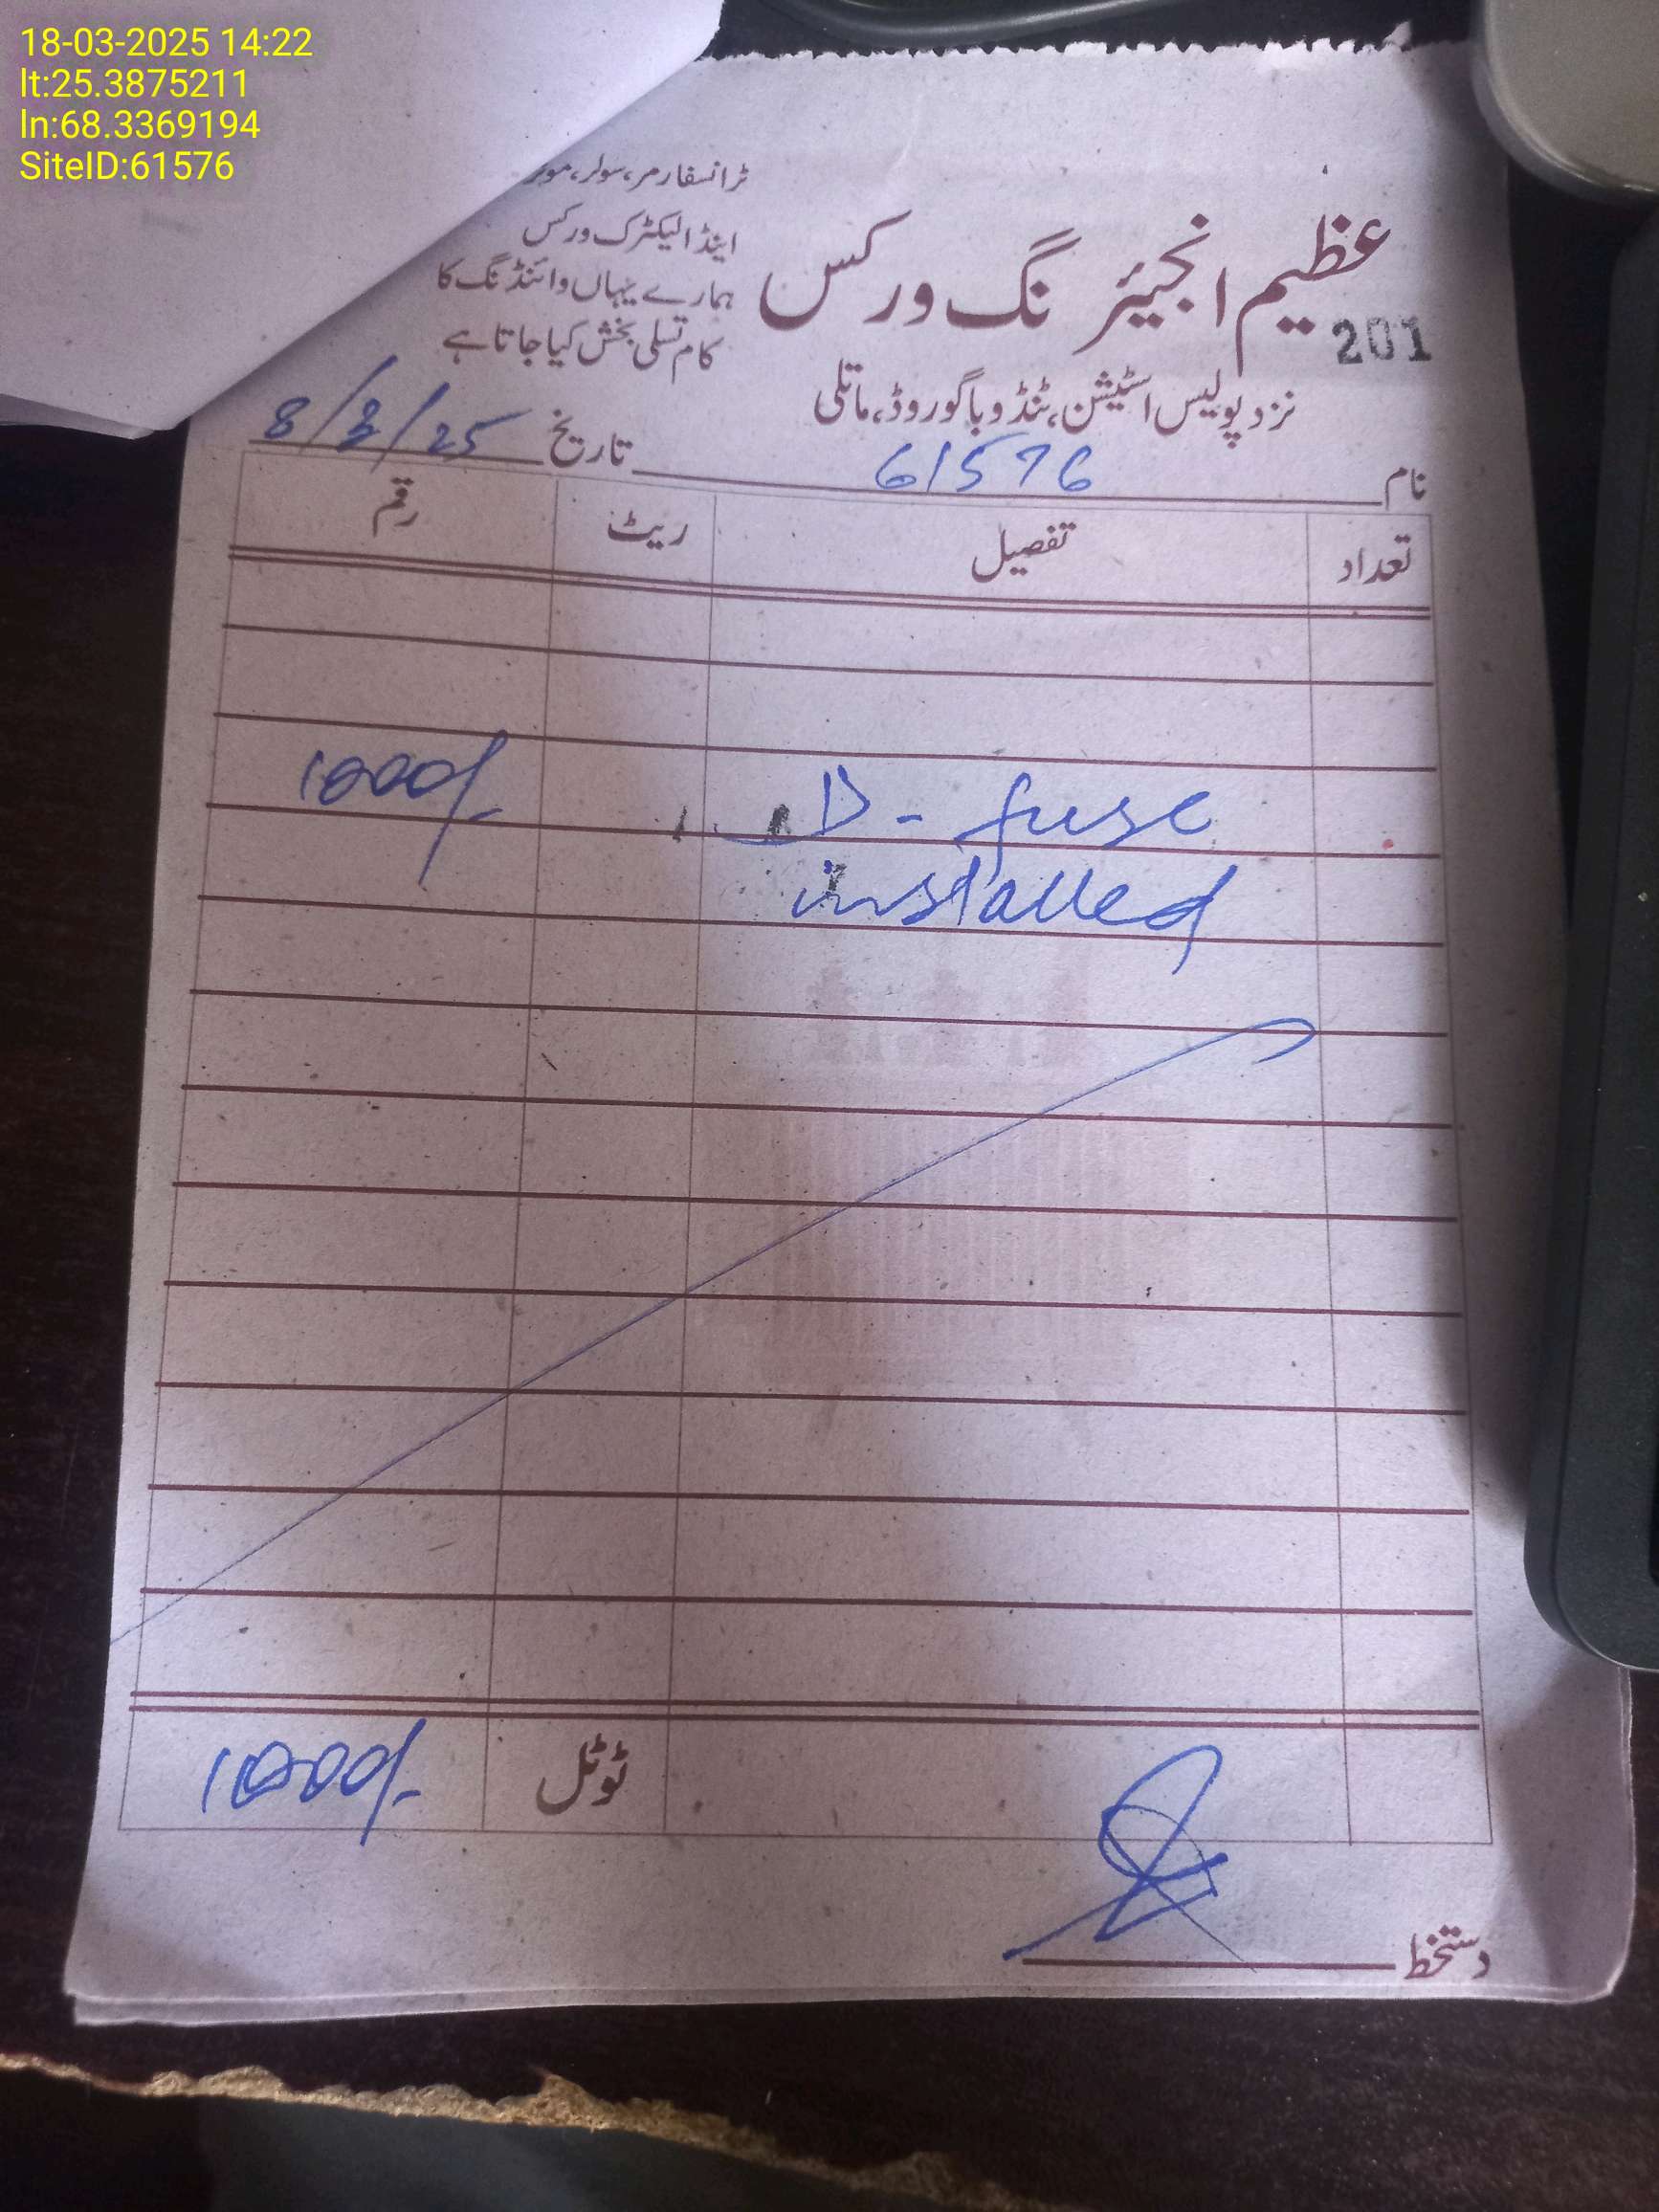 18-03-2025 14:22
lt:25.3875211
ln:68.3369194
SiteID:61576
ٹرانسفارمر، سولر، موٹر
اینڈ الیکٹرک ورکس
ہمارے یہاں وائنڈنگ کا
کام تسلی بخش کیا جاتا ہے
عظیم انجیئرنگ ورکس
201
نزد پولیس اسٹیشن، ٹنڈو باگو روڈ، ماتلی
نام 61576 تاریخ 8/3/25
تعداد تفصیل ریٹ رقم
D-fuse 1000/-
installed
ٹوٹل 1000/-
دستخط